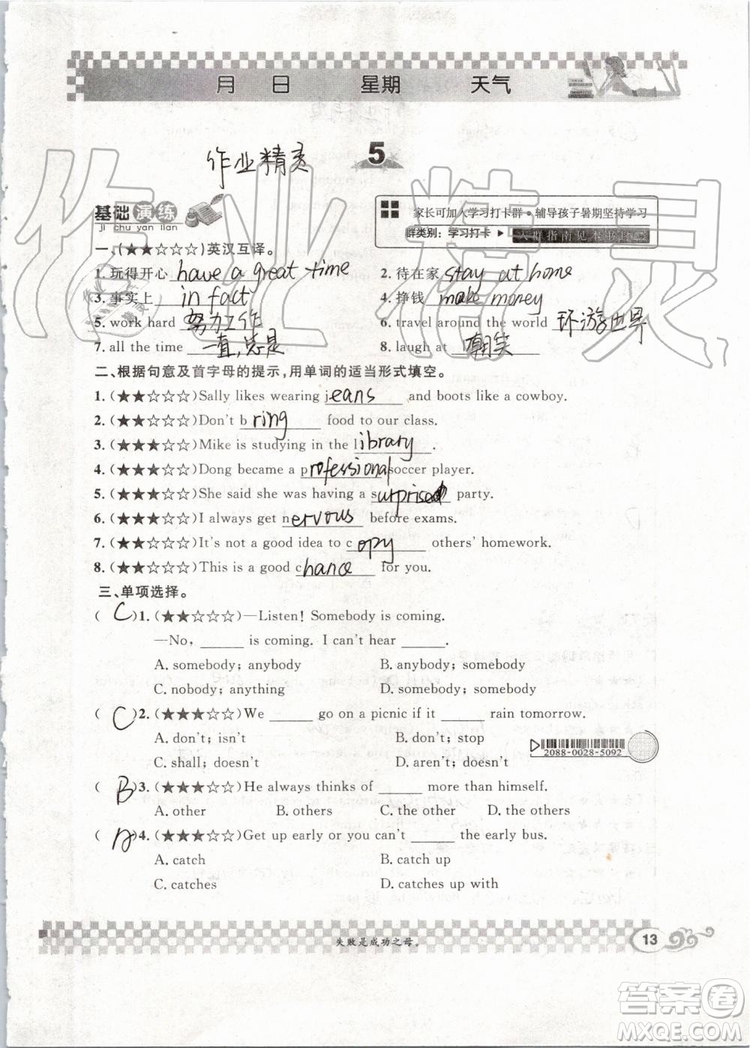 月 日 星期 天气
作业精灵
5
基础演练
ji chu yan lian
家长可加入学习打卡群·辅导孩子暑期坚持学习
群类别：学习打卡
一、(★★☆☆☆)英汉互译。
1. 玩得开心 have a great time 2. 待在家 stay at home
3. 事实上 in fact 4. 挣钱 make money
5. work hard 努力工作 6. travel around the world 环游世界
7. all the time 一直,总是 8. laugh at 嘲笑
二、根据句意及首字母的提示，用单词的适当形式填空。
1. (★★☆☆☆)Sally likes wearing jeans and boots like a cowboy.
2. (★★☆☆☆)Don't bring food to our class.
3. (★★☆☆☆)Mike is studying in the library.
4. (★★☆☆☆)Dong became a professional soccer player.
5. (★★☆☆☆)She said she was having a surprise party.
6. (★★☆☆☆)I always get nervous before exams.
7. (★★☆☆☆)It's not a good idea to copy others' homework.
8. (★★☆☆☆)This is a good chance for you.
三、单项选择。
( C )1. (★★☆☆☆)—Listen! Somebody is coming.
—No, ______ is coming. I can't hear ______.
A. somebody; anybody B. anybody; somebody
C. nobody; anything D. nobody; somebody
( C )2. (★★☆☆☆)We ______ go on a picnic if it ______ rain tomorrow.
A. don't; isn't B. don't; stop
C. shall; doesn't D. aren't; doesn't
2088-0028-5092
( B )3. (★★★☆☆)He always thinks of ______ more than himself.
A. other B. others C. the other D. the others
( A )4. (★★★☆☆)Get up early or you can't ______ the early bus.
A. catch B. catch up
C. catches D. catches up with
失败是成功之母。
13
作业精灵
答案圈
MXQE.COM